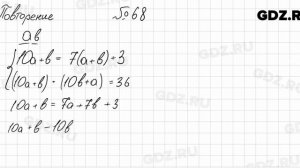 Повторение № 68
GDZ.RU
ab
10a+b = 7(a+b)+3
(10a+b) - (10b+a) = 36
10a+b = 7a+7b+3
10a+b-10b